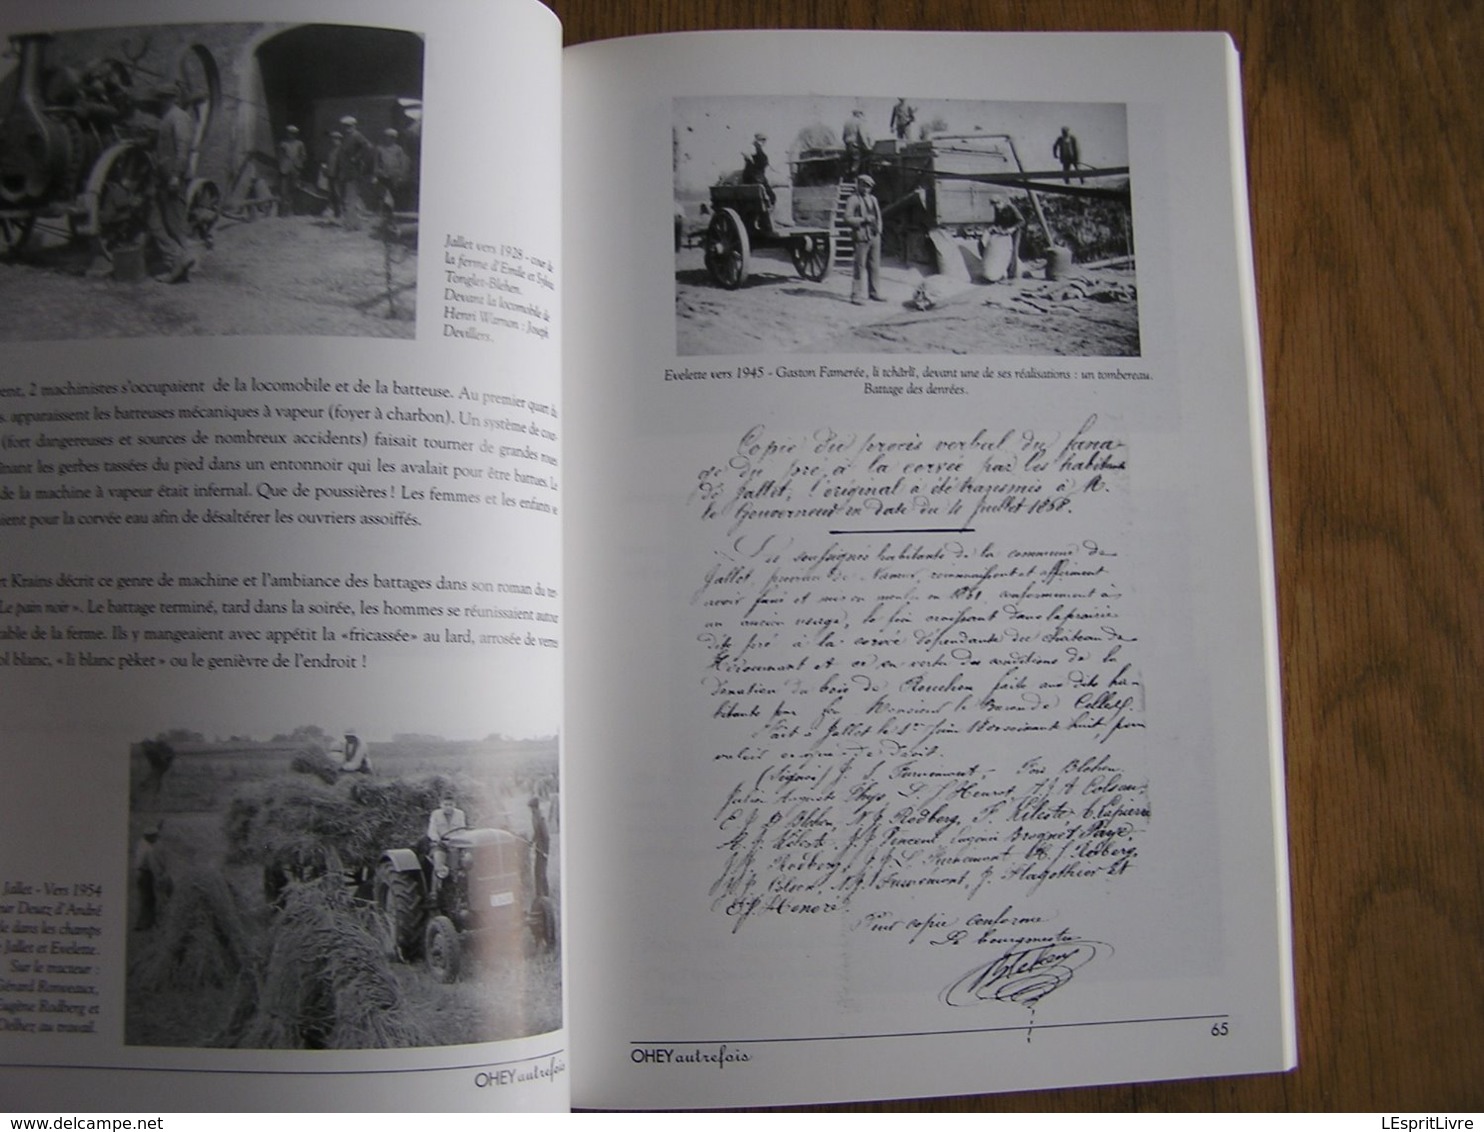 Jallet vers 1928 - cour de
la ferme d'Emile et Sylvie
Tonglet-Blehen.
Devant la locomobile de
Henri Warnon : Joseph
Devillers.
ent, 2 machinistes s'occupaient de la locomobile et de la batteuse. Au premier quart du
s. apparaissent les batteuses mécaniques à vapeur (foyer à charbon). Un système de cour-
(fort dangereuses et sources de nombreux accidents) faisait tourner de grandes roues
înant les gerbes tassées du pied dans un entonnoir qui les avalait pour être battues. Le
de la machine à vapeur était infernal. Que de poussières ! Les femmes et les enfants se
ient pour la corvée eau afin de désaltérer les ouvriers assoiffés.
rt Krains décrit ce genre de machine et l'ambiance des battages dans son roman du ter-
Le pain noir ». Le battage terminé, tard dans la soirée, les hommes se réunissaient autour
table de la ferme. Ils y mangeaient avec appétit la «fricassée» au lard, arrosée de verres
ol blanc, « li blanc pèket » ou le genièvre de l'endroit !
Jallet - Vers 1954
ur Deutz d'André
le dans les champs
Jallet et Evelette.
Sur le tracteur :
Gérard Ronveaux,
Eugène Rodberg et
Delhez au travail.
OHEY autrefois
Evelette vers 1945 - Gaston Famerée, li tchârlî, devant une de ses réalisations : un tombereau.
Battage des denrées.
Copie du procès verbal du fana-
ge du pré, à la corvée par les habitants
de Jallet, l'original à été transmis à M.
le Gouverneur en date du 4 Juillet 1868.
Les soussignés habitants de la commune de
Jallet, province de Namur, reconnaissent et affirment
avoir fané et mis en meulon en 1861 conformément à
un ancien usage, le foin croissant dans la prairie
dite pré à la corvée dépendante du château de
et ce en vertu des conditions de la
donation du bois de Rouchon faite aux dits ha-
bitants par feu Monsieur le Baron de
Fait à Jallet le 1er Juin 18soixante huit, pour
valoir en que de droit.
(Signé) J. S. Furnémont, Fois Blehen.
Julien Auguste Thys, L. J. Henrot, J. J. A. Colson,
C. J. D. Blehen, N. J. Rodberg, F. Kéleste, C. Lapierre
A. J. Kéleste, J. J. Vincent, Eugène Broguet, Paye,
J. J. Rodberg, J. J. L. Furnémont, H. J. Rodberg,
J. J. Bleen, N. J. Furnémont, J. Flagothier Et
J. Henoré.
Pour copie conforme
Le bourgmestre
OHEY autrefois
65
LEspritLivre